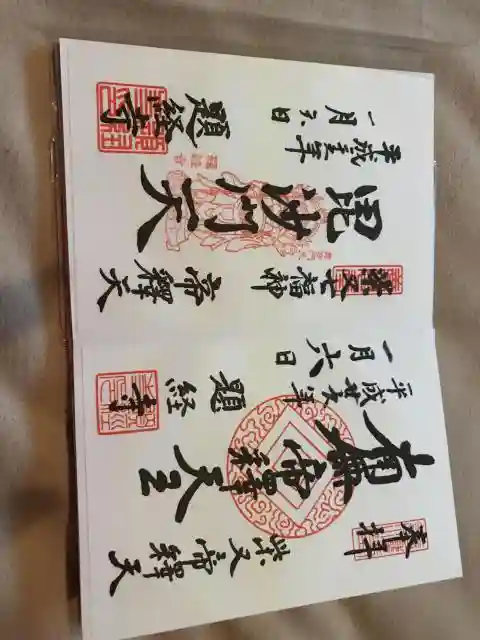 奉拝
柴又帝釋天
南無帝釋天王
平成廿五年
一月六日
題経寺
柴又七福神
帝釋天
毘沙門天
平成廿五年
一月六日
題経寺